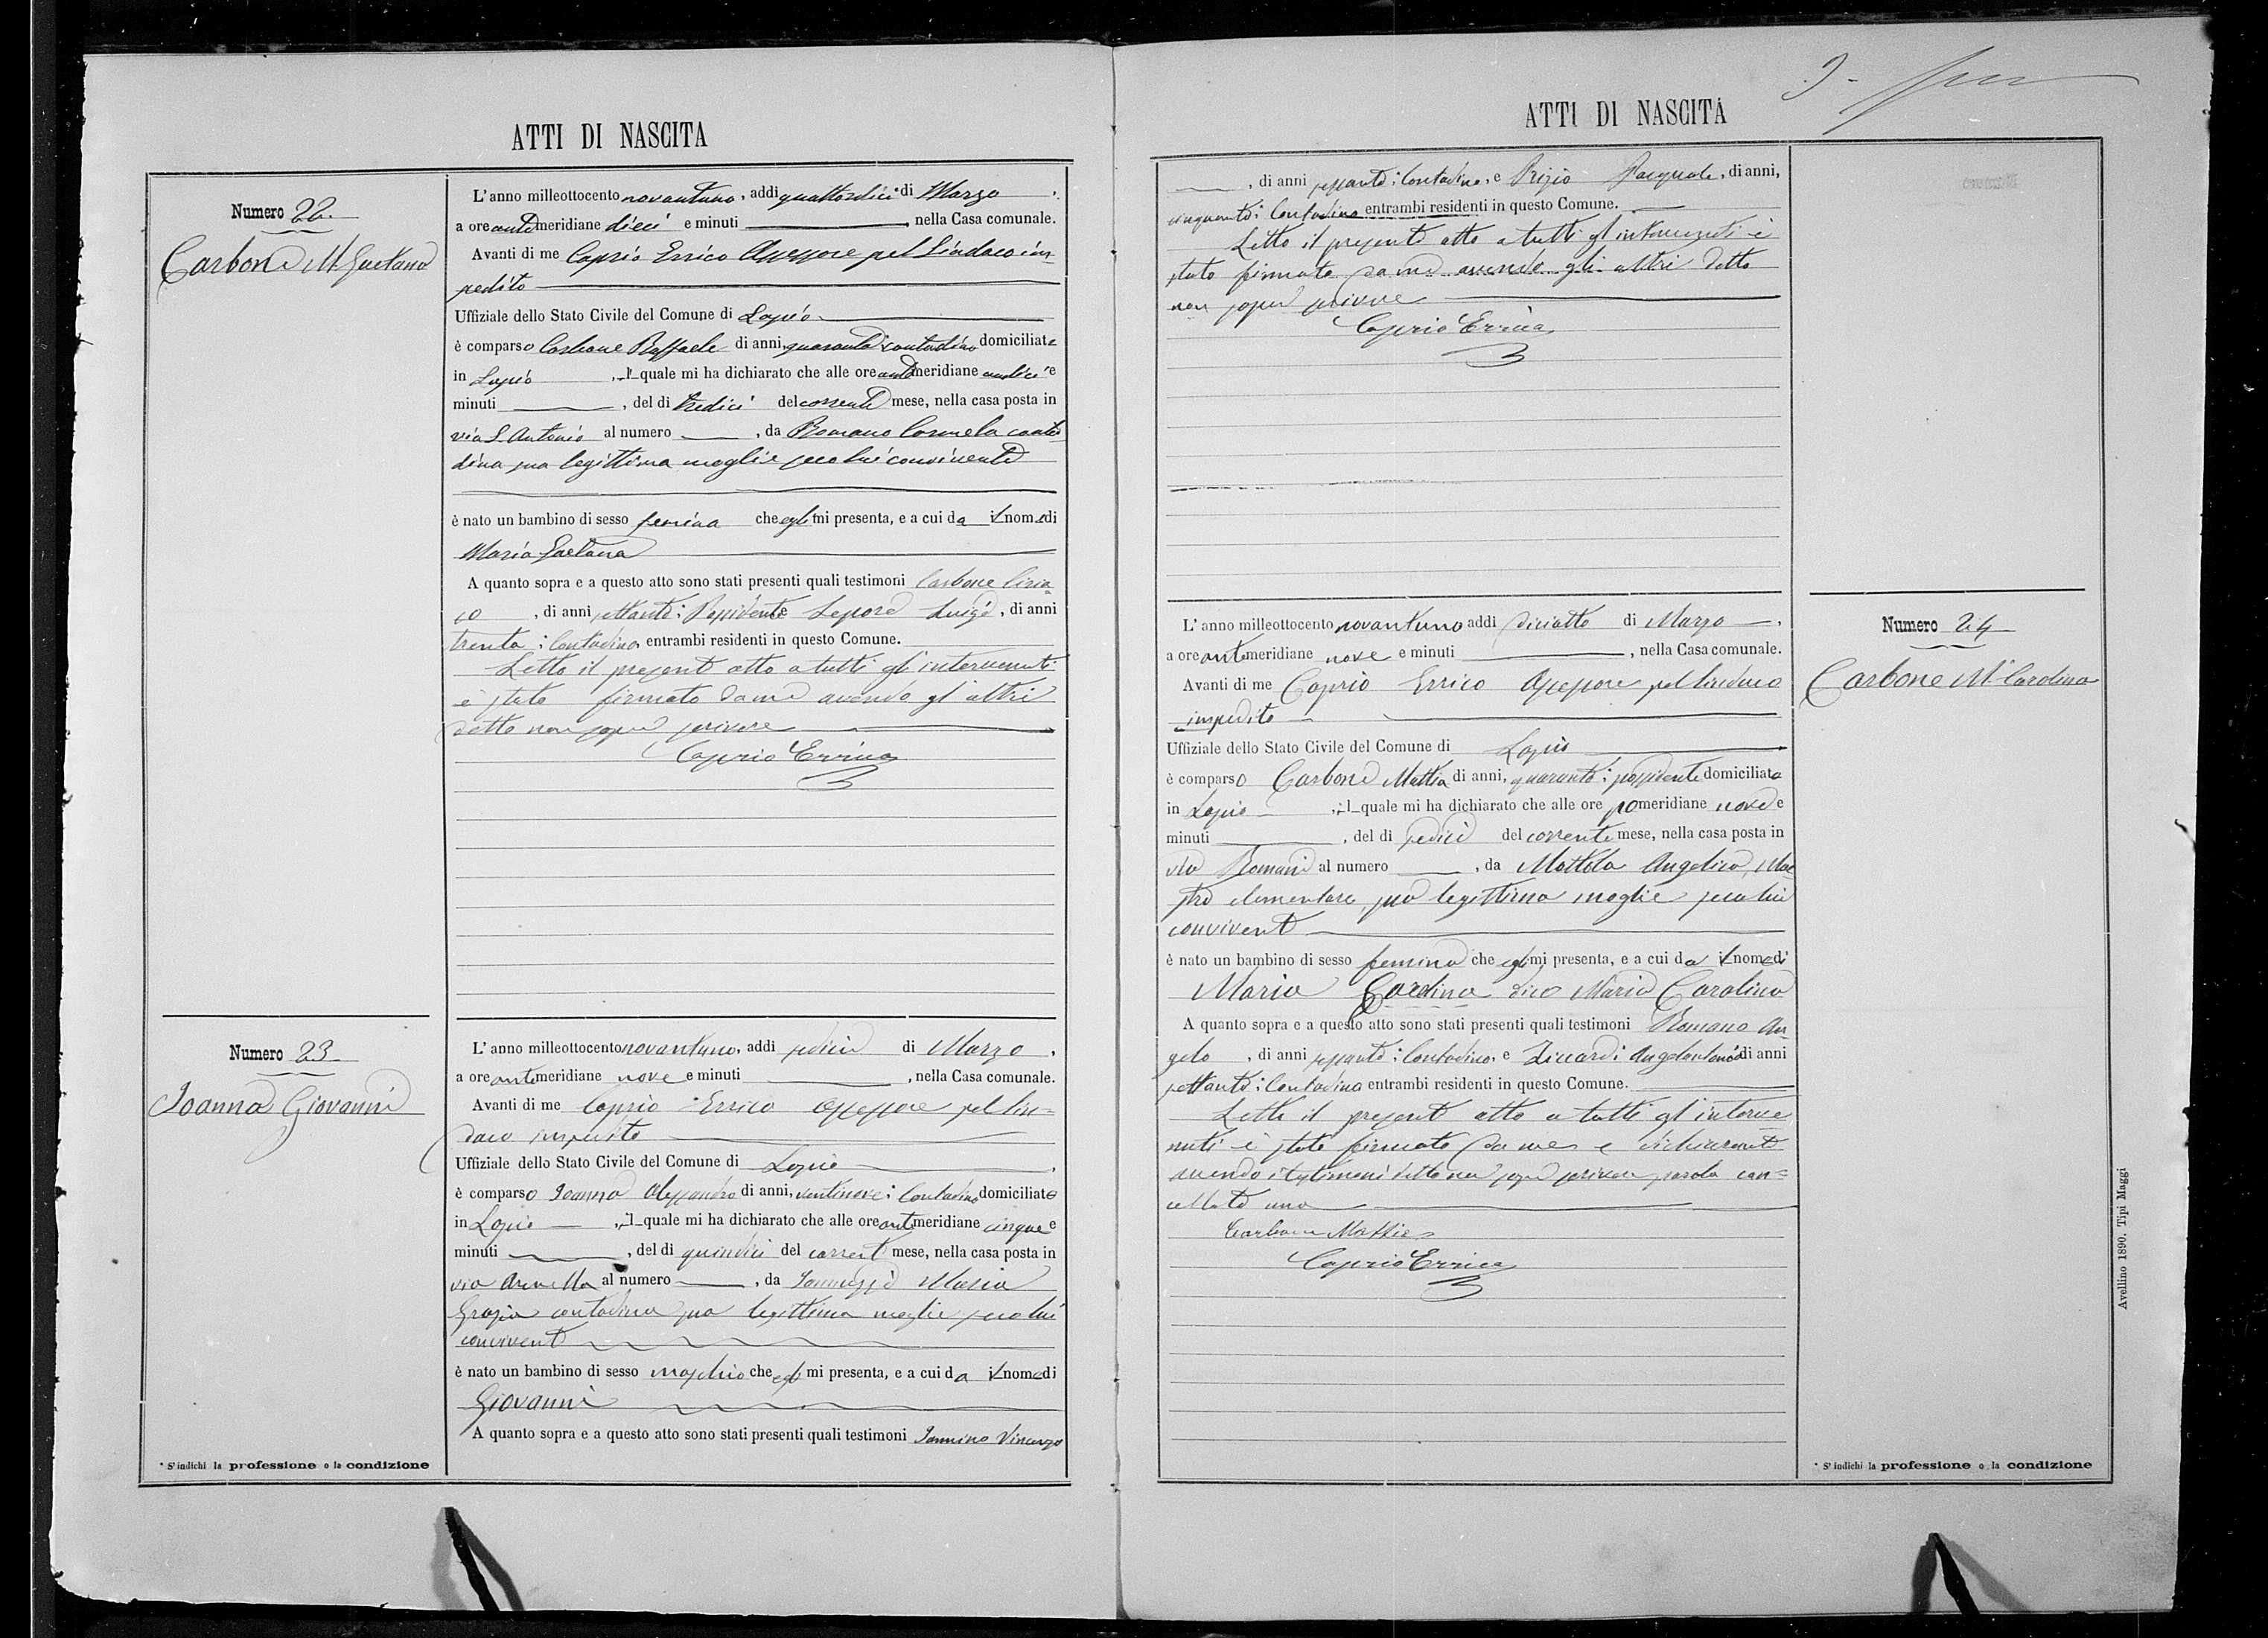 ATTI DI NASCITA
Numero 22.
Carbone Mª Gaetana
L'anno milleottocento novantuno, addi quattordici di Marzo,
a ore antimeridiane dieci e minuti, nella Casa comunale.
Avanti di me Caprio Errico Assessore pel Sindaco im
pedito
Uffiziale dello Stato Civile del Comune di Lapio
è comparso Carbone Raffaele di anni, quaranta; contadino domiciliato
in Lapio, il quale mi ha dichiarato che alle ore antimeridiane undici e
minuti, del di tredici del corrente mese, nella casa posta in
via S. Antonio al numero, da Romano Carmela conta
dina sua legittima moglie seco lui convivente
è nato un bambino di sesso femina che egli mi presenta, e a cui da il nome di
Maria Gaetana
A quanto sopra e a questo atto sono stati presenti quali testimoni Carbone Ciria
co, di anni settanta; Possidente Lepore Luigi, di anni
trenta; Contadino entrambi residenti in questo Comune.
Letto il presente atto a tutti gl'intervenuti
è stato firmato da me avendo gl'altri
detto non saper scrivere
Caprio Errico
Numero 23
Joanna Giovanni
L'anno milleottocento novantuno, addi sedici di Marzo,
a ore antimeridiane nove e minuti, nella Casa comunale.
Avanti di me Caprio Errico Assessore pel Sin=
daco impedito
Uffiziale dello Stato Civile del Comune di Lapio
è comparso Joanna Alessandro di anni, ventinove; Contadino domiciliato
in Lapio, il quale mi ha dichiarato che alle ore antimeridiane cinque e
minuti, del di quindici del corrente mese, nella casa posta in
via al numero, da Maria
Grazia contadina sua legittima moglie seco lui
convivente
è nato un bambino di sesso maschio che egli mi presenta, e a cui da il nome di
Giovanni
A quanto sopra e a questo atto sono stati presenti quali testimoni Jannino Vincenzo
* S'indichi la professione o la condizione
ATTI DI NASCITA
, di anni sessanta; Contadino, e Prizio Pasquale, di anni,
cinquanta; Contadino entrambi residenti in questo Comune.
Letto il presente atto a tutti gl'intervenuti è
stato firmato da me avendo gli altri detto
non saper scrivere
Caprio Errico
L'anno milleottocento novantuno addi diciotto di Marzo,
a ore antimeridiane nove e minuti, nella Casa comunale.
Avanti di me Caprio Errico Assessore pel Sindaco
impedito
Uffiziale dello Stato Civile del Comune di Lapio
è comparso Carbone Mattia di anni, quaranta; possidente domiciliato
in Lapio, il quale mi ha dichiarato che alle ore pomeridiane nove e
minuti, del di sedici del corrente mese, nella casa posta in
via Romani al numero, da Mottola Angelica, Mae
stra elementare, sua legittima moglie seco lui
convivente
è nato un bambino di sesso femina che egli mi presenta, e a cui da il nome di
Maria dico Maria Carolina
A quanto sopra e a questo atto sono stati presenti quali testimoni Romano An
gelo, di anni sessanta; Contadino, e Ziccardi Angelantonio di anni
settanta; Contadino entrambi residenti in questo Comune.
Letto il presente atto a tutti gl'interve
nuti è stato firmato da me e dichiarante
avendo i testimoni detto non saper scrivere, parola can=
cellata una
Carbone Mattia
Caprio Errico
Numero 24
Carbone Mª Carolina
* S'indichi la professione o la condizione
Avellino 1890. Tipi Maggi